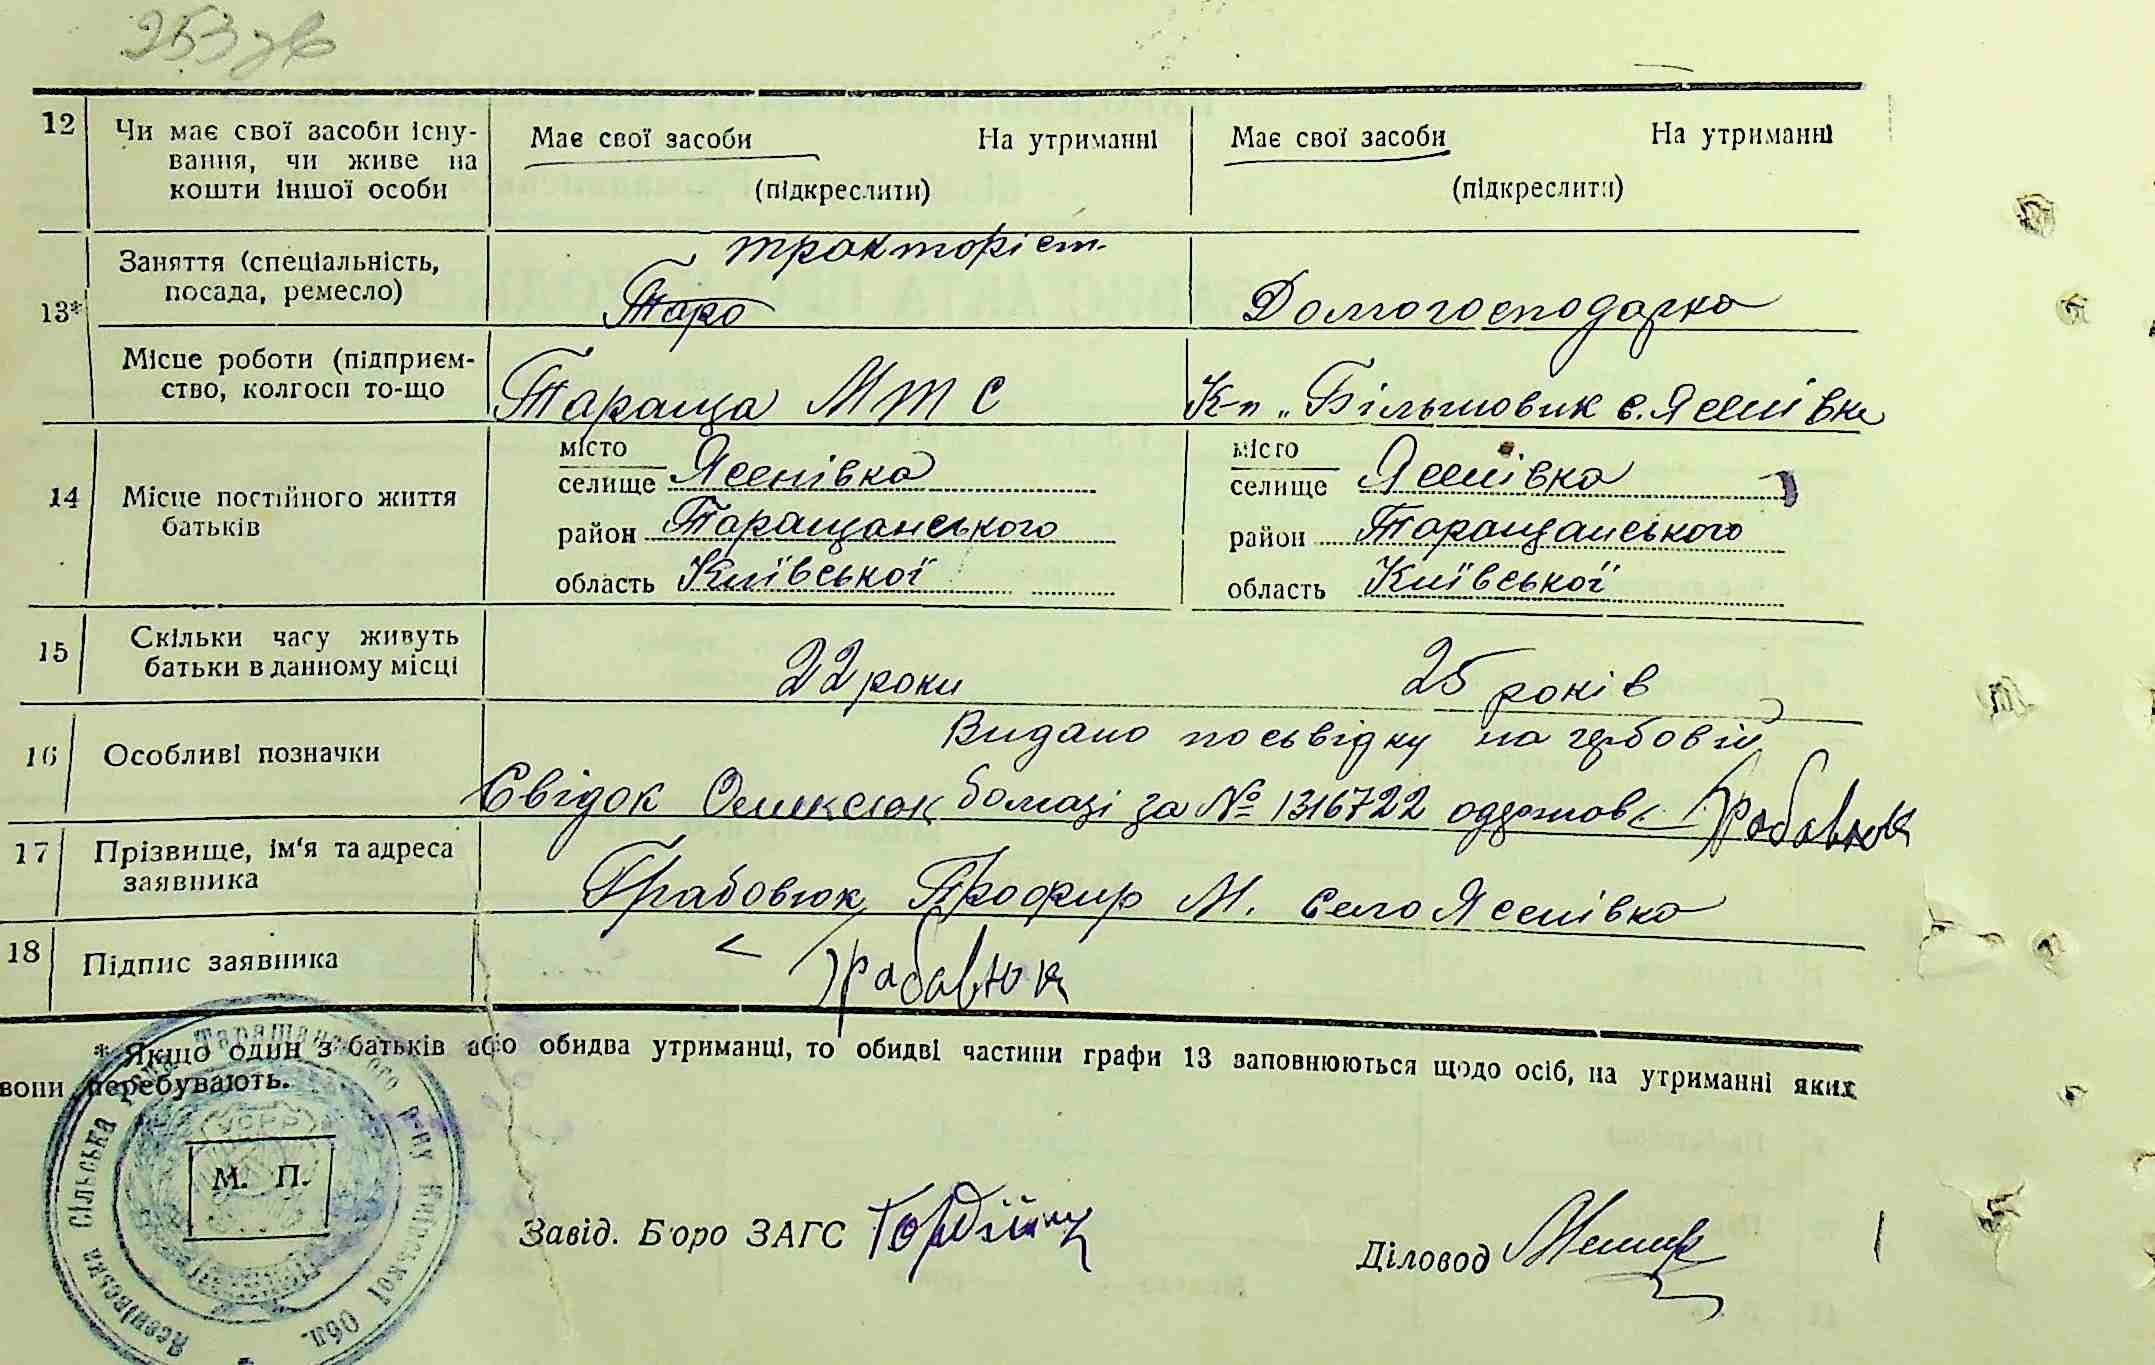 253 зв
12 Чи має свої засоби існу- Має свої засоби На утриманні Має свої засоби На утриманні
вання, чи живе на
кошти іншої особи (підкреслити) (підкреслити)
тракторіст
13* Заняття (спеціальність,
посада, ремесло) Таро Домогосподарка
Місце роботи (підприєм-
ство, колгосп то-що Тараща МТС К-п „Більшовик с. Ясенівка
14 Місце постійного життя
батьків
місто
селище Ясенівка
район Таращанського
область Київської
місто
селище Ясенівка
район Таращанського
область Київської
15 Скільки часу живуть
батьки в данному місці 22 роки 25 років
16 Особливі позначки Видано посьвідку на гербовій
Свідок бомазі за № 1316722 Грабовюк
17 Прізвище, ім'я та адреса
заявника Грабовюк Профир М. село Ясенівка
18 Підпис заявника Грабавюк
* Якщо один з батьків або обидва утриманці, то обидві частини графи 13 заповнюються щодо осіб, на утриманні яких
вони перебувають.
Ясенівська Сільська Рада Таращанського р-ну Київської Обл.
УСРР
М. П.
Завід. Бюро ЗАГС
Діловод